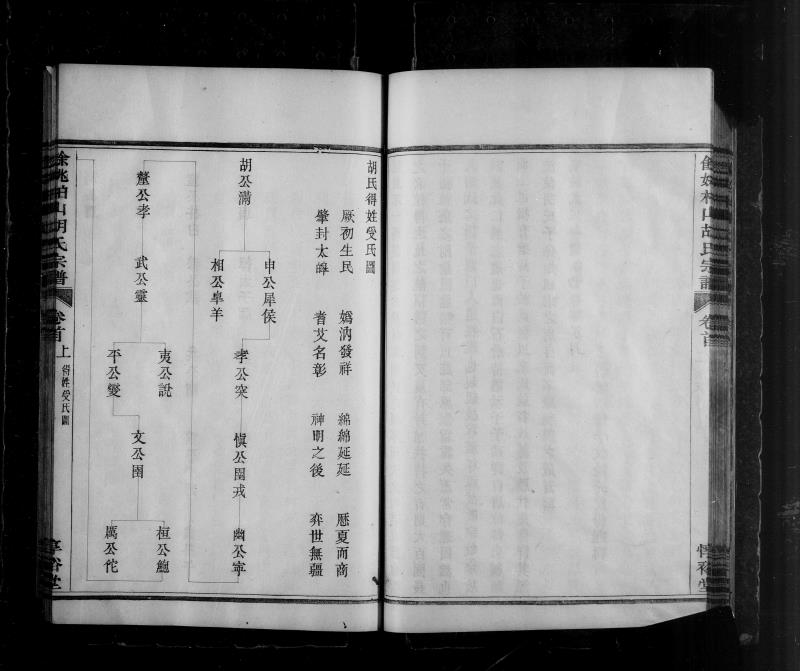 胡氏得姓受氏圖
厥初生民 媯汭發祥 綿綿延延 歷夏而商
肇封太皞 耆艾名彰 神明之後 弈世無疆
胡公滿
申公犀侯
相公皐羊
孝公突
慎公圉戎
幽公寧
釐公孝
武公靈
夷公說
平公燮
文公圉
桓公鮑
厲公佗
餘姚柏山胡氏宗譜
卷首 上
得姓受氏圖
享裕堂
餘姚柏山胡氏宗譜
卷首